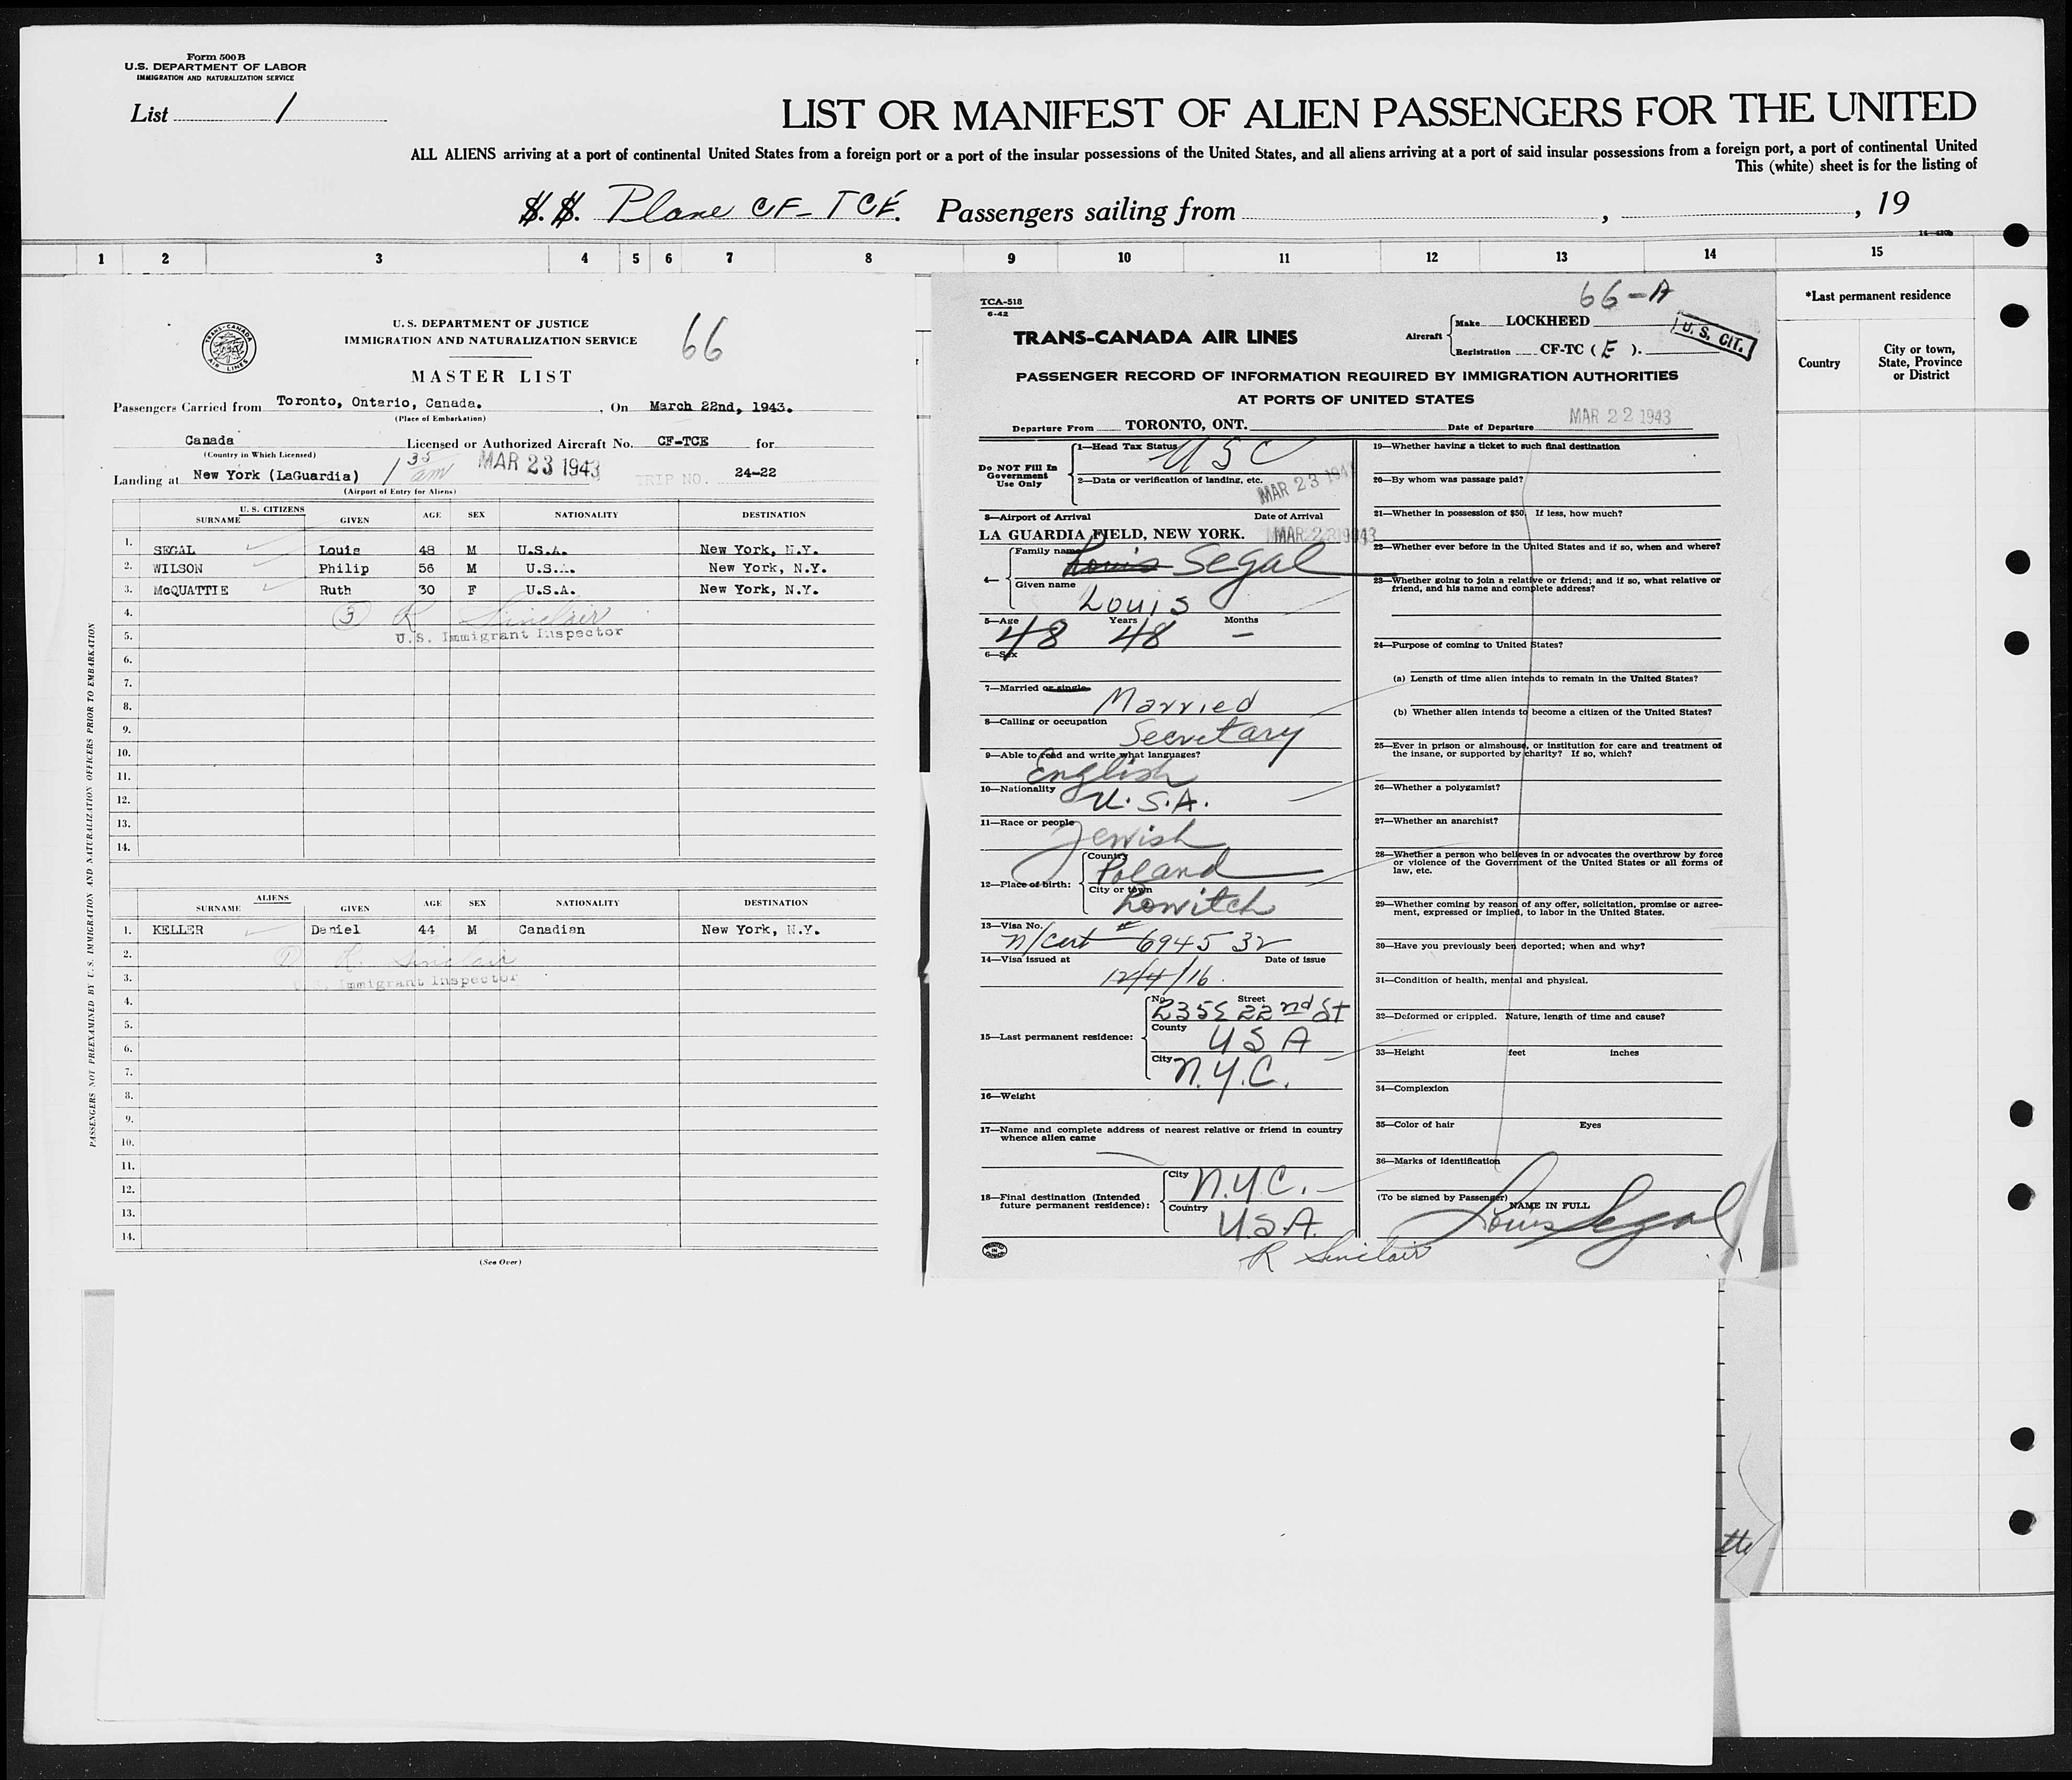 Form 500B
U.S. DEPARTMENT OF LABOR
IMMIGRATION AND NATURALIZATION SERVICE
List 1
LIST OR MANIFEST OF ALIEN PASSENGERS FOR THE UNITED
ALL ALIENS arriving at a port of continental United States from a foreign port or a port of the insular possessions of the United States, and all aliens arriving at a port of said insular possessions from a foreign port, a port of continental United
This (white) sheet is for the listing of
S.S. Plane CF-TCE. Passengers sailing from , , 19
1 2 3 4 5 6 7 8 9 10 11 12 13 14 15
*Last permanent residence
Country
City or town, State, Province or District
TRANS-CANADA AIR LINES
U.S. DEPARTMENT OF JUSTICE
IMMIGRATION AND NATURALIZATION SERVICE
66
MASTER LIST
Passengers Carried from Toronto, Ontario, Canada. , On March 22nd, 1943.
(Place of Embarkation)
Canada Licensed or Authorized Aircraft No. CF-TCE for
(Country in Which Licensed)
Landing at New York (LaGuardia) 1 35 am MAR 23 1943 TRIP NO. 24-22
(Airport of Entry for Aliens)
U.S. CITIZENS
SURNAME GIVEN AGE SEX NATIONALITY DESTINATION
1. SEGAL Louis 48 M U.S.A. New York, N.Y.
2. WILSON Philip 56 M U.S.A. New York, N.Y.
3. McQUATTIE Ruth 30 F U.S.A. New York, N.Y.
4. (3) R Sinclair
5. U.S. Immigrant Inspector
6.
7.
8.
9.
10.
11.
12.
13.
14.
ALIENS
SURNAME GIVEN AGE SEX NATIONALITY DESTINATION
1. KELLER Daniel 44 M Canadian New York, N.Y.
2. (1) R. Sinclair
3. Immigrant Inspector
4.
5.
6.
7.
8.
9.
10.
11.
12.
13.
14.
(See Over)
PASSENGERS NOT PREEXAMINED BY U.S. IMMIGRATION AND NATURALIZATION OFFICERS PRIOR TO EMBARKATION
TCA-518
6-42
66-A
TRANS-CANADA AIR LINES
Aircraft Make LOCKHEED
Registration CF-TC (E).
U.S. CIT.
PASSENGER RECORD OF INFORMATION REQUIRED BY IMMIGRATION AUTHORITIES
AT PORTS OF UNITED STATES
Departure From TORONTO, ONT. Date of Departure MAR 22 1943
Do NOT Fill In Government Use Only
1—Head Tax Status USC
2—Data or verification of landing, etc. MAR 23 1943
3—Airport of Arrival Date of Arrival
LA GUARDIA FIELD, NEW YORK. MAR 23 1943
4— Family name Louis Segal
Given name Louis
5—Age 48 Years 48 Months —
6—Sex
7—Married or single Married
8—Calling or occupation Secretary
9—Able to read and write what languages? English
10—Nationality U.S.A.
11—Race or people Jewish
12—Place of birth: Country Poland
City or town Lowitch
13—Visa No. n/Cert # 694532
14—Visa issued at Date of issue
12/4/16
15—Last permanent residence: No. Street 235E 22nd St
County USA
City N.Y.C.
16—Weight
17—Name and complete address of nearest relative or friend in country whence alien came
18—Final destination (Intended future permanent residence): City N.Y.C.
Country U.S.A.
R Sinclair
19—Whether having a ticket to such final destination
20—By whom was passage paid?
21—Whether in possession of $50. If less, how much?
22—Whether ever before in the United States and if so, when and where?
23—Whether going to join a relative or friend; and if so, what relative or friend, and his name and complete address?
24—Purpose of coming to United States?
(a) Length of time alien intends to remain in the United States?
(b) Whether alien intends to become a citizen of the United States?
25—Ever in prison or almshouse, or institution for care and treatment of the insane, or supported by charity? If so, which?
26—Whether a polygamist?
27—Whether an anarchist?
28—Whether a person who believes in or advocates the overthrow by force or violence of the Government of the United States or all forms of law, etc.
29—Whether coming by reason of any offer, solicitation, promise or agreement, expressed or implied, to labor in the United States.
30—Have you previously been deported; when and why?
31—Condition of health, mental and physical.
32—Deformed or crippled. Nature, length of time and cause?
33—Height feet inches
34—Complexion
35—Color of hair Eyes
36—Marks of identification
(To be signed by Passenger) NAME IN FULL
Louis Segal